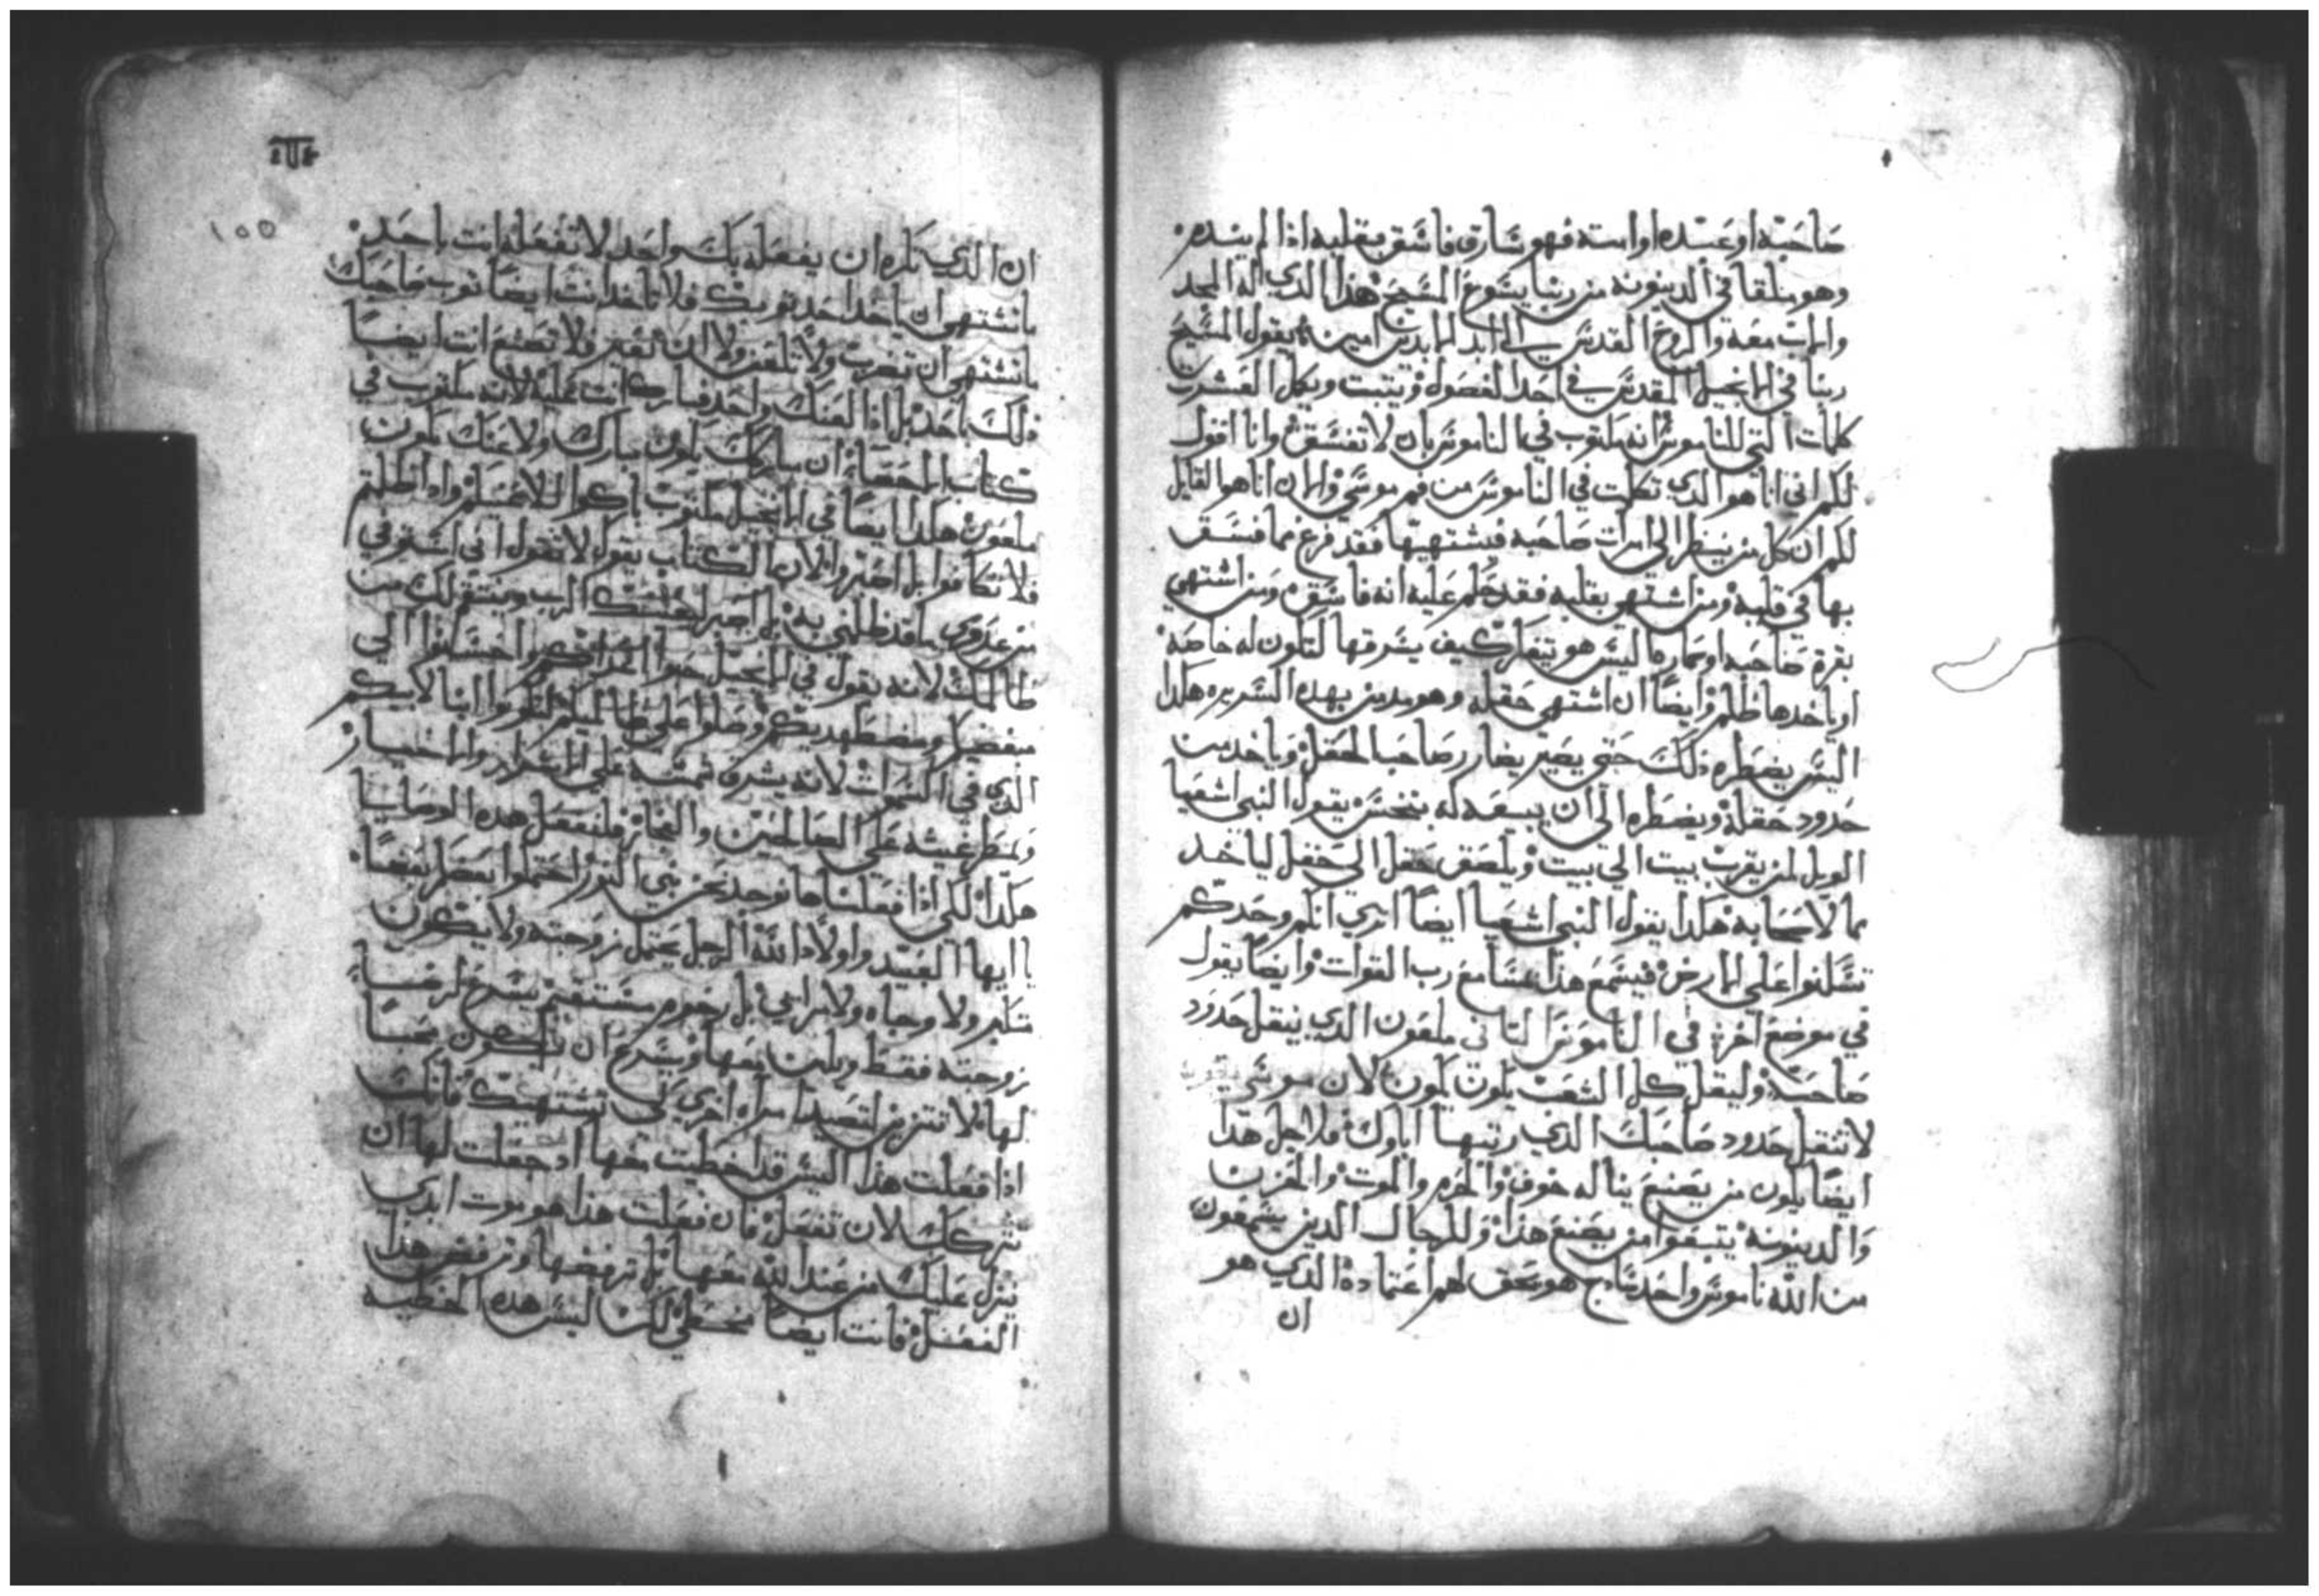 صاحبه او عبده او امته فهو سارق فاسق بقلبه اذا لم يندم
وهو ملقا في الدينونه من ربنا يسوع المسيح هذا الدي له المجد
والاب معه والروح القدس الي ابد الابدين امين يقول المسيح
ربنا في الانجيل المقدس في احد الفصول ويتبت ويكمل العشرت
كلمات التي للناموس انه مكتوب في الناموس بان لا تفسق وانا اقول
لكم اني انا هو الدي تكلمت في الناموس من فم موسي والان انا هو القايل
لكم ان كل من ينظر الي امرات صاحبه فيشتهيها فقد فرغ مما فسق
بها في قلبه ومن اشتهي بقلبه فقد حكم عليه انه فاسق ومن اشتهي
بقرة صاحبه او حماره اليس هو يتفكر كيف يسرقها لتكون له خاصه
او ياخدها ظلم وايضا ان اشتهي حقله وهو مدمن بهده السريره هكدا
اليس يضطره دلك حتي يصير يضارر صاحب الحقل وياخد من
حدود حقله ويضطره الي ان يبيعه له ببخس يقول النبي اشعيا
الويل لمن يقرب بيت الي بيت ويلصق حقل الي حقل لياخد
مما لاصحابه هكدا يقول النبي اشعيا ايضا اتري انكم وحدكم
تسكنوا علي الارض فيسمع هدا مسامع رب القوات وايضا يقول
في موضع اخر في الناموس التاني ملعون الدي ينقل حدود
صاحبه وليقل كل الشعب يكون يكون لان موسي يقول
لا تنقل حدود صاحبك الدي رتبها اباوك فلاجل هدا
ايضا يكون من يصنع يناله خوف والحرم والموت والحزن
والدينونه يتبعوا من يصنع هدا وللرجال الدين يسمعون
من الله ناموس واحد سادج هو محق لهم اعتماده الدي هو
ان
١٥٥
ان الدي تكره ان يفعله بك واحد لا تفعله انت باحد
ما تشتهي ان ياخد احد توبك فلا تاخد انت ايضا توب صاحبك
ما تشتهي ان تضرب ولا تلعن ولا ان تعير فلا تصنع انت ايضا
دلك باحد بل ادا لعنك واحد فبارك انت عليه لانه مكتوب في
كتاب الاحصا ان مباركك يكون مبارك ولاعنك يكون
ملعون هكدا ايضا في الانجيل مكتوب باركوا للاعنيكم وادا ظلمتم
فلا تكافوا بل اصبروا لان الكتاب يقول لا تقول اني اشتفي
من عدوي بما قد ظلمني به بل اصبر لعينك الرب وينتقم لك من
ظالمك لانه يقول في الانجيل حبوا اعداكم احسنوا الي
مبغضيكم ومضطهديكم وصلوا علي ظالميكم لتكونوا ابنا لابيكم
الدي في السموات لانه يشرق شمسه علي الاشرار والاخيار
ويمطر غيثه علي الظالمين والابرار فلنفعل هده الوصايا
هكدا لكي ادا فعلناها نوجد نحن بني النور احتملوا بعضكم بعضا
يا ايها العبيد واولاد الله الرجل يحتمل زوجته ولا يكون
متكبر ولا مرايي بل رحوم مستقيم يسرع لرضا
زوجته فقط ويلين معها ويسرع ان يكون محبا
لها لا تتزين لتصيد امراه اخري كي تشتهيك فانك
ادا فعلت هدا اليس قد اخطيت معها او جعلت لها ان
تتركك لان تفعل فان فعلت هدا هو موت ابدي
ينزل عليك من عند الله معها بل ترفضها وترفض هدا
الفعل فانت ايضا مخطي لكن ليس هده الخطيه